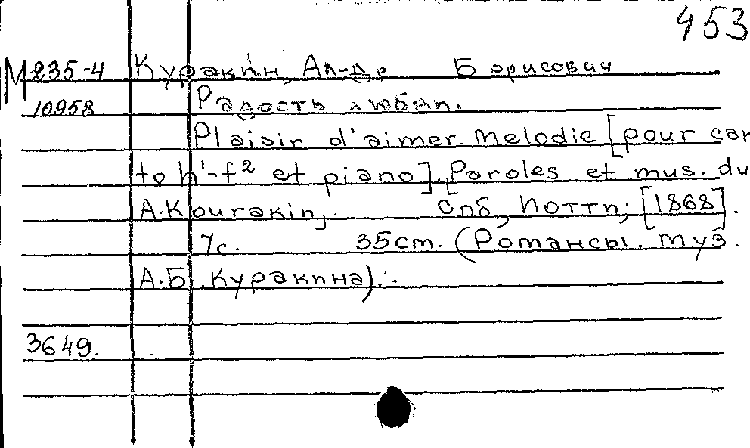 453
М 235-4 Куракин, Ал-др Борисович
10958 Радость любви.
Plaisir d'aimer. Melodie [pour can
to h'-f² et piano]. Paroles et mus. du
A. Kourakin, Спб, Иотти, [1868].
7с. 35cm. (Романсы. Муз.
А.Б. Куракина).
3649.